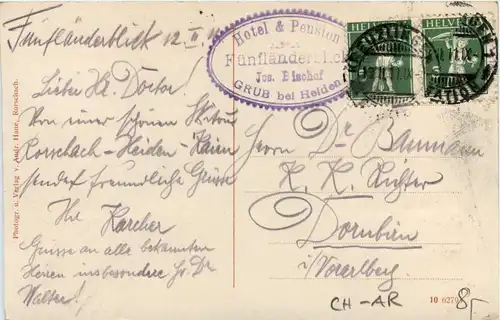 Fünfländerblick 12. II.
Hotel & Pension
Fünfländerblick
Jos. Bischof
GRUB bei Heiden
HELVETIA
Lieber Hr. Doctor!
Von einer schönen Skitour
Rorschach-Heiden-Kaien
sendet freundliche Grüsse
Ihr Karcher
Grüsse an alle bekannten
Herren insbesondere Hr. Dr
Walter!
Herrn Dr Baumann
K. K. Richter
Dornbirn
i/Vorarlberg.
CH-AR
10 6279
8,-
Photogr. u. Verlag v. Rorschach.